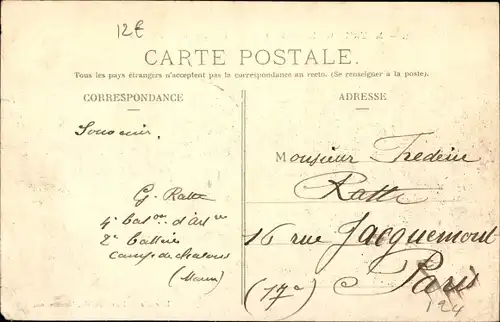 12€
CARTE POSTALE.
Tous les pays étrangers n'acceptent pas la correspondance au recto. (Se renseigner à la poste).
CORRESPONDANCE
ADRESSE
Souvenir.
G. Ratte
4e Baton d'Art
2e Batterie
Camp de chalons
(Marne)
Monsieur Frederic
Ratte
16 rue Jacquemont
(17e) Paris
124